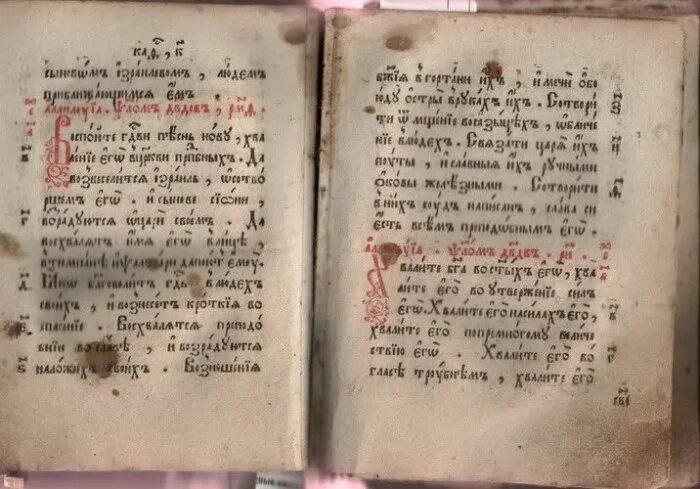 каѳ, к҃
сыновѡмъ їзраилевомъ, людемъ
приближающимся ѐмꙋ̀.
аллилꙋїа. ѱаломъ дв҃дѡвъ, рм҃ѳ.
Воспойте гдⷭ҇ви пѣснь новꙋ, хва
ленїе є҆гѡ̀ вцр҃кви прпⷣбныхъ. Да
возвеселится їзраиль, ѡ҆сотво
ршемъ є҆го̀. и҆ сынове сїѡни,
возрадꙋются ѡ҆цр҃и своемъ. Да
восхвалятъ и҆мя є҆гѡ̀ влицѣ,
втимпанѣ и҆ ѱалтыри да поютъ є҆мꙋ̀.
Ꙗкѡ благоволитъ гдⷭ҇ь влюдехъ
своихъ, и҆ вознесетъ кроткїѧ во
спасенїе. Восхвалятся преподо
бнїи вославѣ, и҆ возрадꙋются
наложихъ своихъ. Возношенїя
бж҃їѧ вгортани и҆́хъ, и҆ мечи ѻ҆бо
юдꙋ ѻ҆стры врꙋкахъ и҆́хъ. Сотвори
ти ѿмщенїе воѧзыцѣхъ, ѡ҆бличе
нїе влюдехъ. Свѧзати царѧ и҆́хъ
пꙋты, и҆ славныѧ и҆́хъ рꙋчными
ѻ҆ковы желѣзными. Сотворити
вни́хъ сꙋдъ написанъ, слава сиѧ
є҆сть всѣмъ преподобнымъ є҆гѡ̀.
аллилꙋїа. ѱаломъ дв҃дѡвъ. рн҃.
Хвалите бг҃а восты́хъ є҆гѡ̀, хва
лите є҆го̀ во ꙋтвержение силы
є҆гѡ̀. Хвалите є҆го̀ насилахъ є҆гѡ̀,
хвалите є҆го̀ попремногомꙋ величе
ствїю є҆гѡ̀. Хвалите є҆го̀ во
гласѣ трꙋбнѣмъ, хвалите є҆го̀